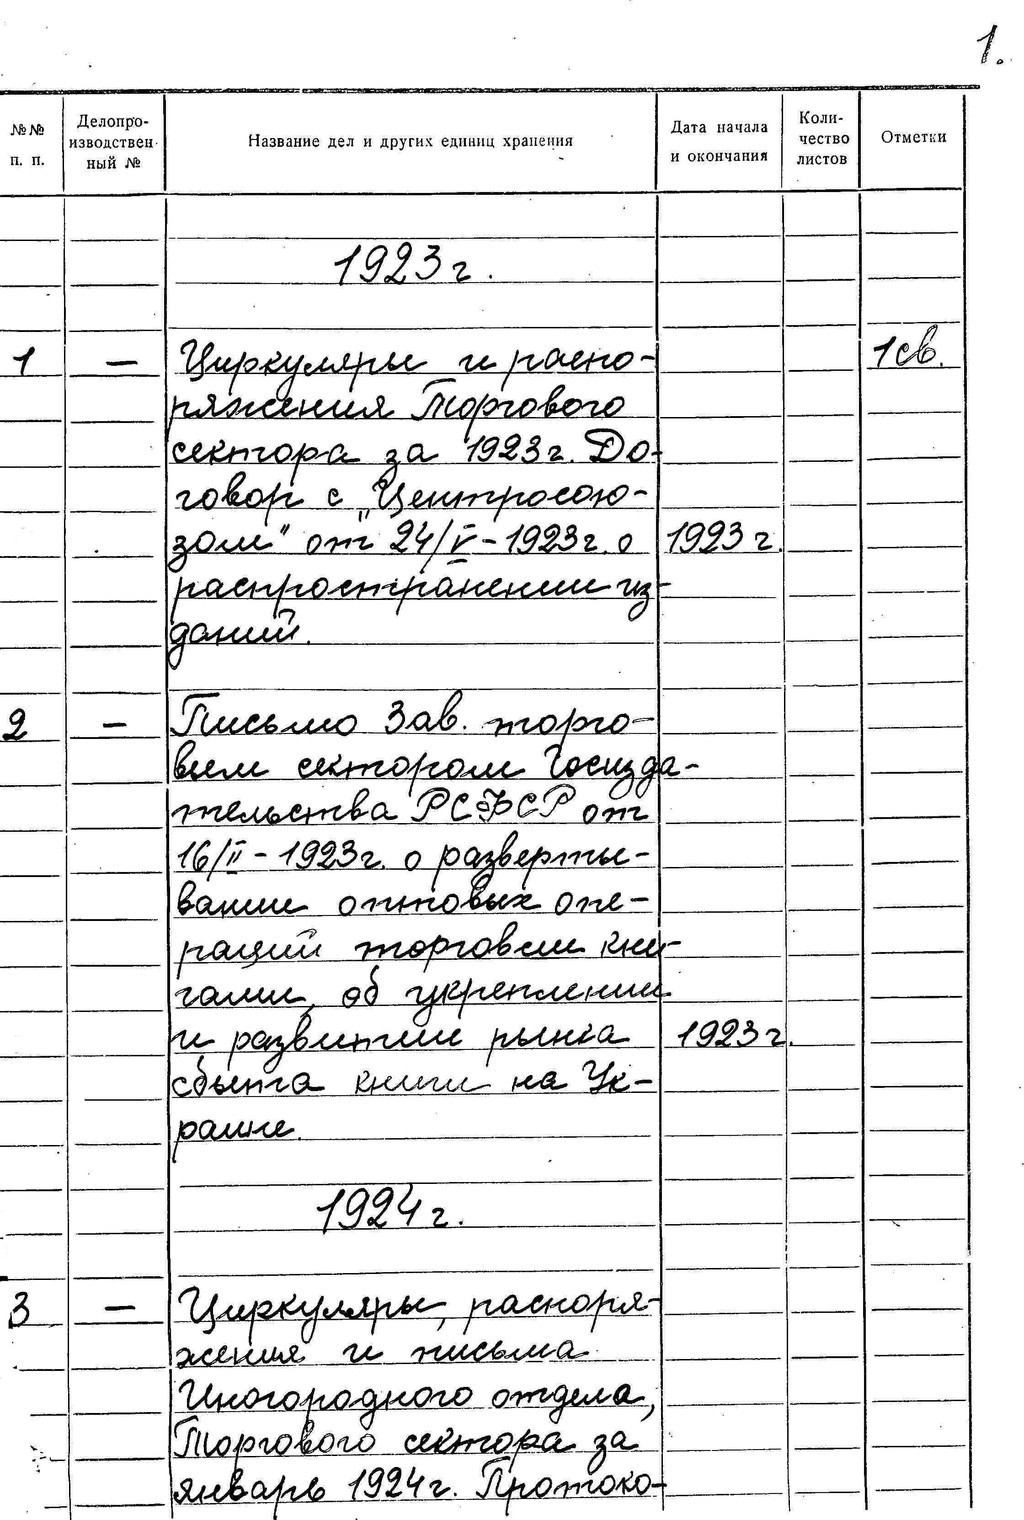 1.
№№ п. п.
Делопро-изводствен-ный №
Название дел и других единиц хранения
Дата начала и окончания
Коли-чество листов
Отметки
1923 г.
1 — Циркуляры и распо- 1 св.
ряжения Торгового
сектора за 1923 г. До-
говор с „Центросою-
зом" от 24/V - 1923 г. о 1923 г.
распространении из-
даний.
2 — Письмо Зав. торго-
вым сектором Госизда-
тельства РСФСР от
16/II - 1923 г. о разверты-
вании оптовых опе-
раций торговли кни-
гами, об укреплении
и развитии рынка 1923 г.
сбыта книги на Ук-
раине.
1924 г.
3 — Циркуляры, распоря-
жения и письма
Иногородного отдела,
Торгового сектора за
январь 1924 г. Протоко-